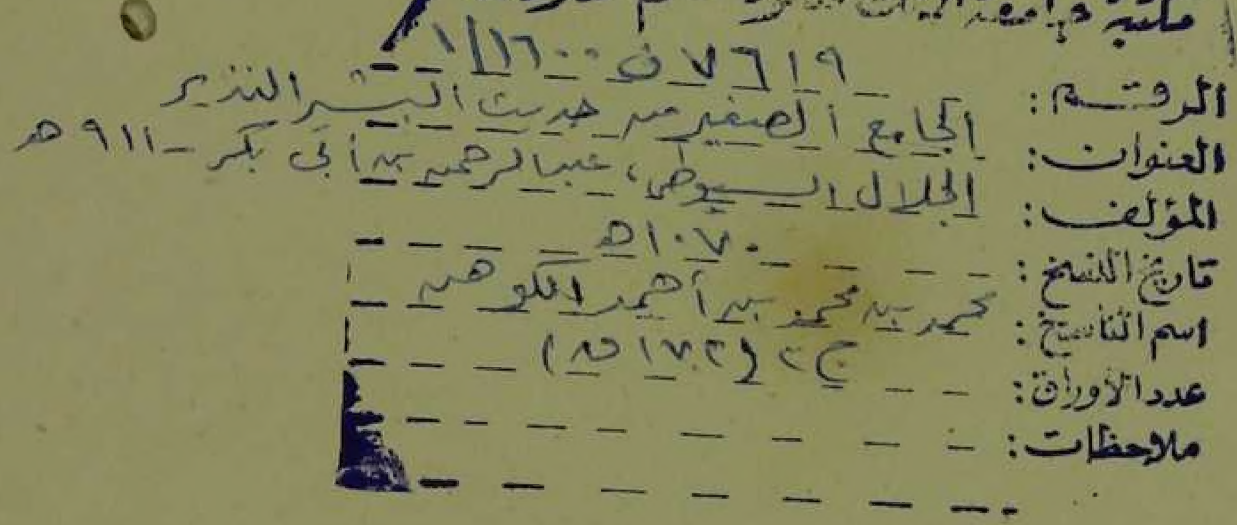 مكتبة جامعة
الرقم: ٧٦١٩ ف ١/١٦٠٠
العنوان: الجامع الصغير من حديث البشير النذير
المؤلف: الجلال السيوطي، عبدالرحمن بن أبي بكر - ٩١١ هـ
تاريخ النسخ: ١٠٧٠ هـ
اسم الناسخ: محمد بن محمد بن أحمد الكوهن
عدد الأوراق: ج ٢ (١٧٢ ق)
ملاحظات: